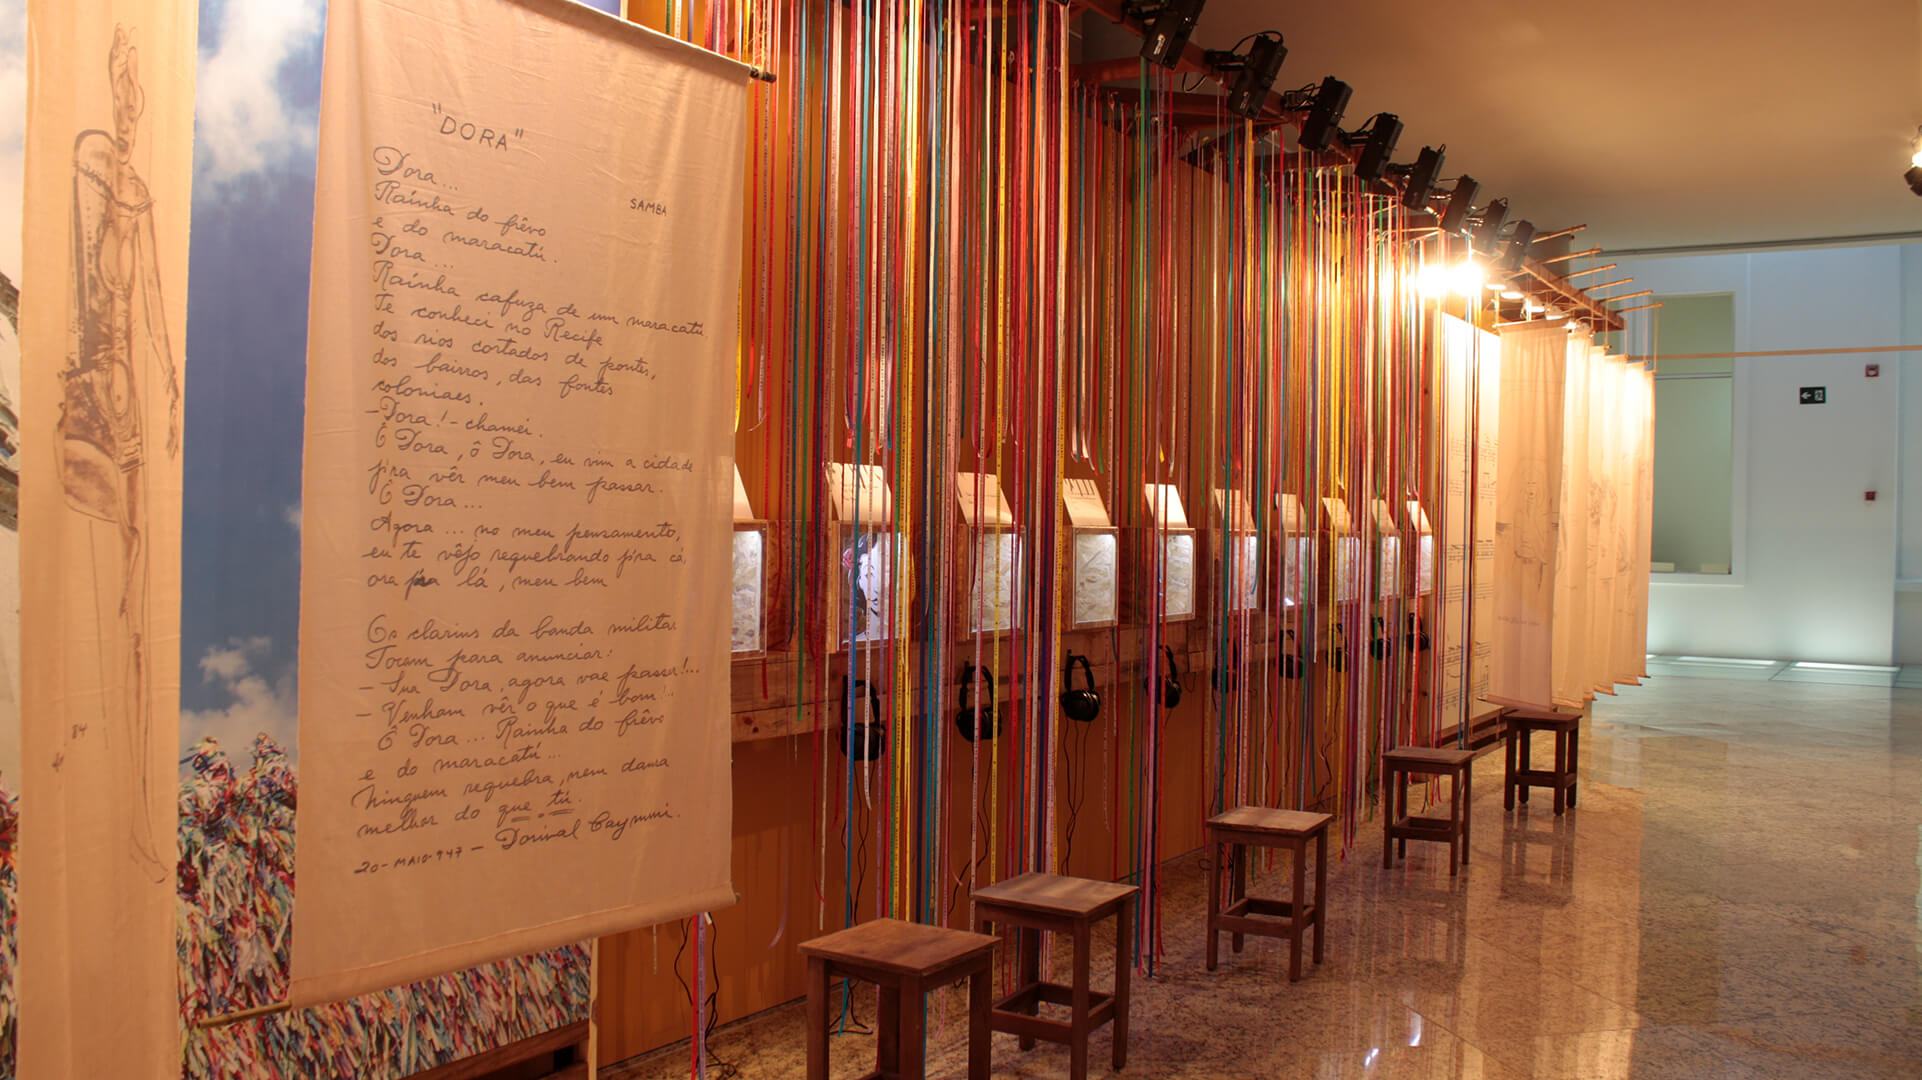 "DORA"
SAMBA
Dora...
Rainha do frêvo
e do maracatú.
Dora...
Rainha cafuza de um maracatú.
Te conheci no Recife
dos rios cortados de pontes,
dos bairros, das fontes
coloniaes.
- Dora! - chamei.
Ô Dora, ô Dora, eu vim a cidade
p'ra vêr meu bem passar.
Ô Dora...
Agora... no meu pensamento,
eu te vêjo requebrando p'ra cá,
ora p'ra lá, meu bem
Os clarins da banda militar
Tocam para anunciar:
- Sua Dora, agora vae passar!...
- Venham vêr o que é bom!..
Ô Dora... Rainha do frêvo
e do maracatú...
Ninguem requebra, nem dansa
melhor do que tú.
20-MAIO-947 - Dorival Caymmi.
84